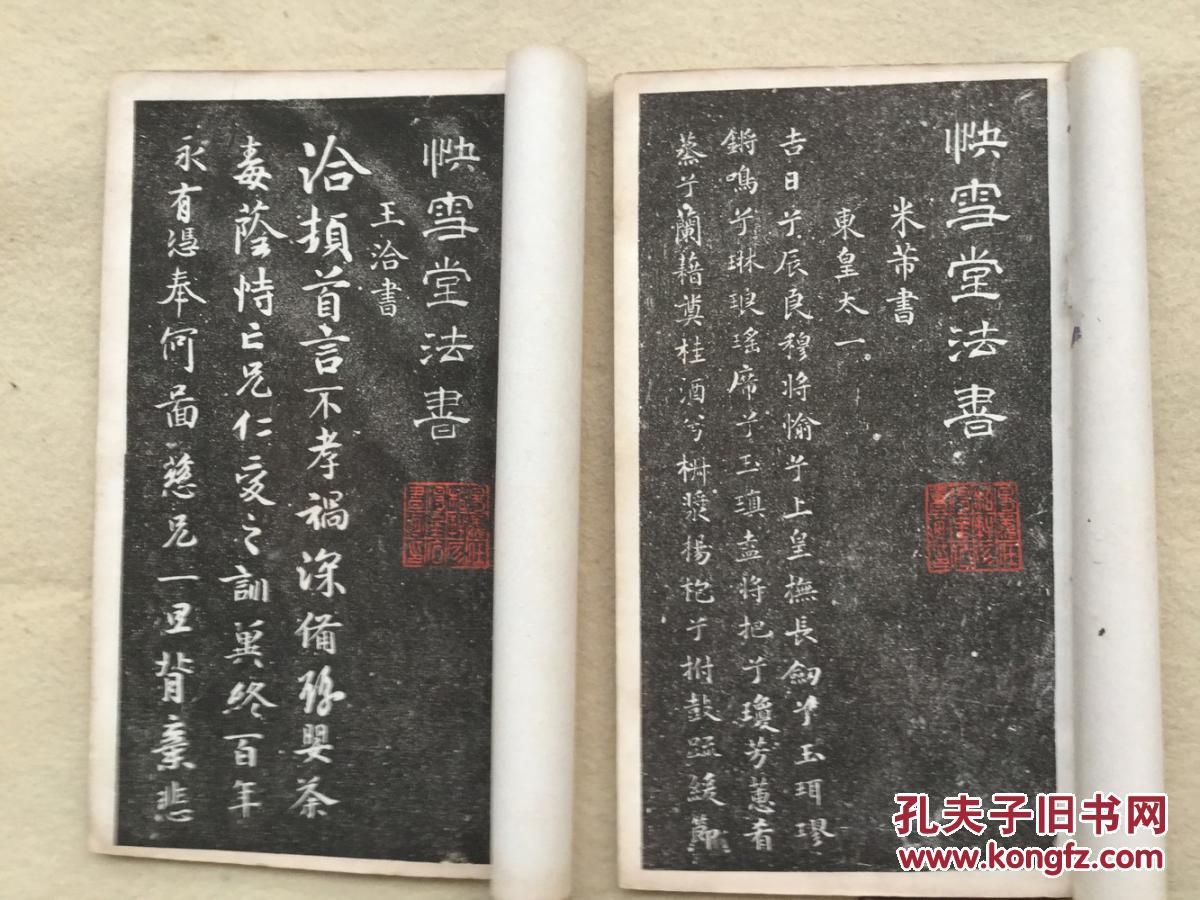 快雪堂法書
米芾書
東皇太一
吉日兮辰良穆將愉兮上皇撫長劒兮玉珥璆
鏘鳴兮琳琅瑤席兮玉瑱盍將把兮瓊芳蕙肴
蒸兮蘭藉奠桂酒兮椒漿揚枹兮拊鼓疏緩節
快雪堂法書
王洽書
洽頓首言不孝禍深備豫嬰荼
毒蔭恃亡兄仁愛之訓冀終百年
永有憑奉何圖慈兄一旦背棄悲
孔夫子旧书网
www.kongfz.com